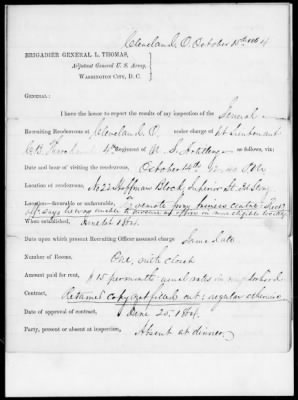 Cleveland, O. October 15th 1864
BRIGADIER GENERAL L. THOMAS,
Adjutant General U. S. Army,
WASHINGTON CITY, D. C.
GENERAL:
I have the honor to report the results of my inspection of the General
Recruiting Rendezvous at Cleveland O. under charge of 1st Lieutenant
4th Regiment of U. S. Artillery as follows, viz:
Date and hour of visiting the rendezvous, October 14th
Location of rendezvous, No 22 Hoffman Block, Superior St.
Location—favorable or unfavorable, remote from business center.
off. says he was unable to procure an office in more eligible locality
When established, June 1st 1864.
Date upon which present Recruiting Officer assumed charge Same date
Number of Rooms, One, with closet
Amount paid for rent, $15 per month: usual rates in neighborhood
Contract, Retained copy not filled out; regular otherwise
Date of approval of contract, June 25, 1864.
Party, present or absent at inspection, Absent at dinner.